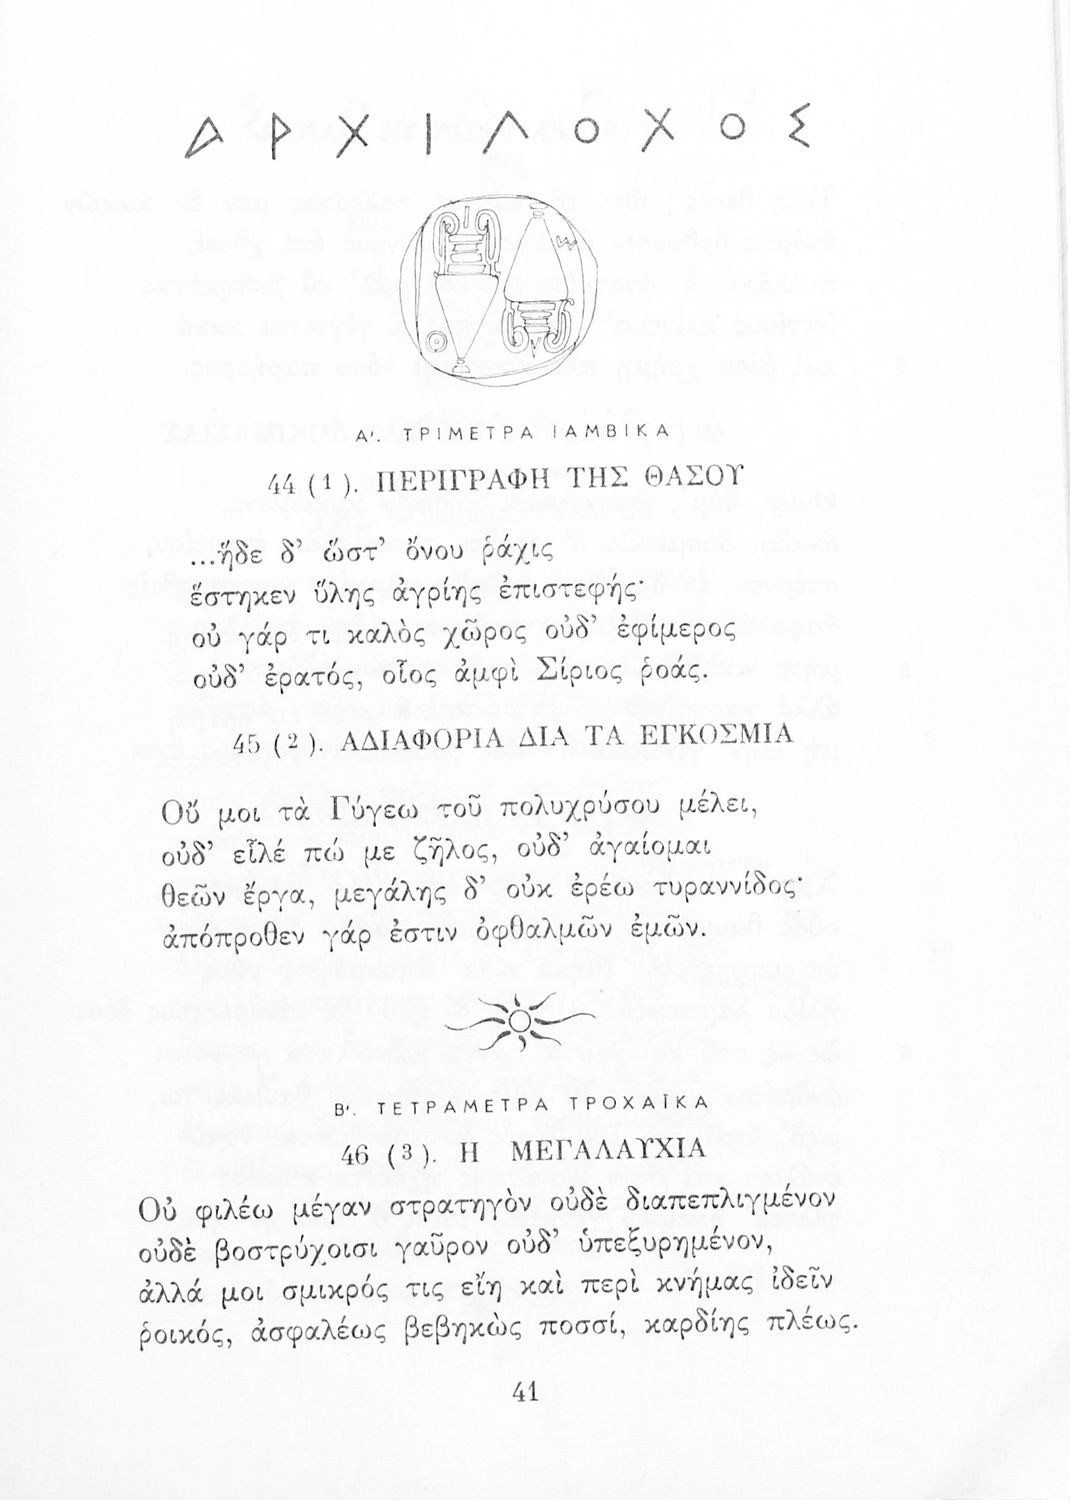 ΑΡΧΙΛΟΧΟΣ
Α'. ΤΡΙΜΕΤΡΑ ΙΑΜΒΙΚΑ
44 (1). ΠΕΡΙΓΡΑΦΗ ΤΗΣ ΘΑΣΟΥ
...ἥδε δ' ὥστ' ὄνου ῥάχις
ἕστηκεν ὕλης ἀγρίης ἐπιστεφής·
οὐ γάρ τι καλὸς χῶρος οὐδ' ἐφίμερος
οὐδ' ἐρατός, οἷος ἀμφὶ Σίριος ῥοάς.
45 (2). ΑΔΙΑΦΟΡΙΑ ΔΙΑ ΤΑ ΕΓΚΟΣΜΙΑ
Οὔ μοι τὰ Γύγεω τοῦ πολυχρύσου μέλει,
οὐδ' εἷλέ πώ με ζῆλος, οὐδ' ἀγαίομαι
θεῶν ἔργα, μεγάλης δ' οὐκ ἐρέω τυραννίδος·
ἀπόπροθεν γάρ ἐστιν ὀφθαλμῶν ἐμῶν.
Β'. ΤΕΤΡΑΜΕΤΡΑ ΤΡΟΧΑΪΚΑ
46 (3). Η ΜΕΓΑΛΑΥΧΙΑ
Οὐ φιλέω μέγαν στρατηγὸν οὐδὲ διαπεπλιγμένον
οὐδὲ βοστρύχοισι γαῦρον οὐδ' ὑπεξυρημένον,
ἀλλά μοι σμικρός τις εἴη καὶ περὶ κνήμας ἰδεῖν
ῥοικός, ἀσφαλέως βεβηκὼς ποσσί, καρδίης πλέως.
41